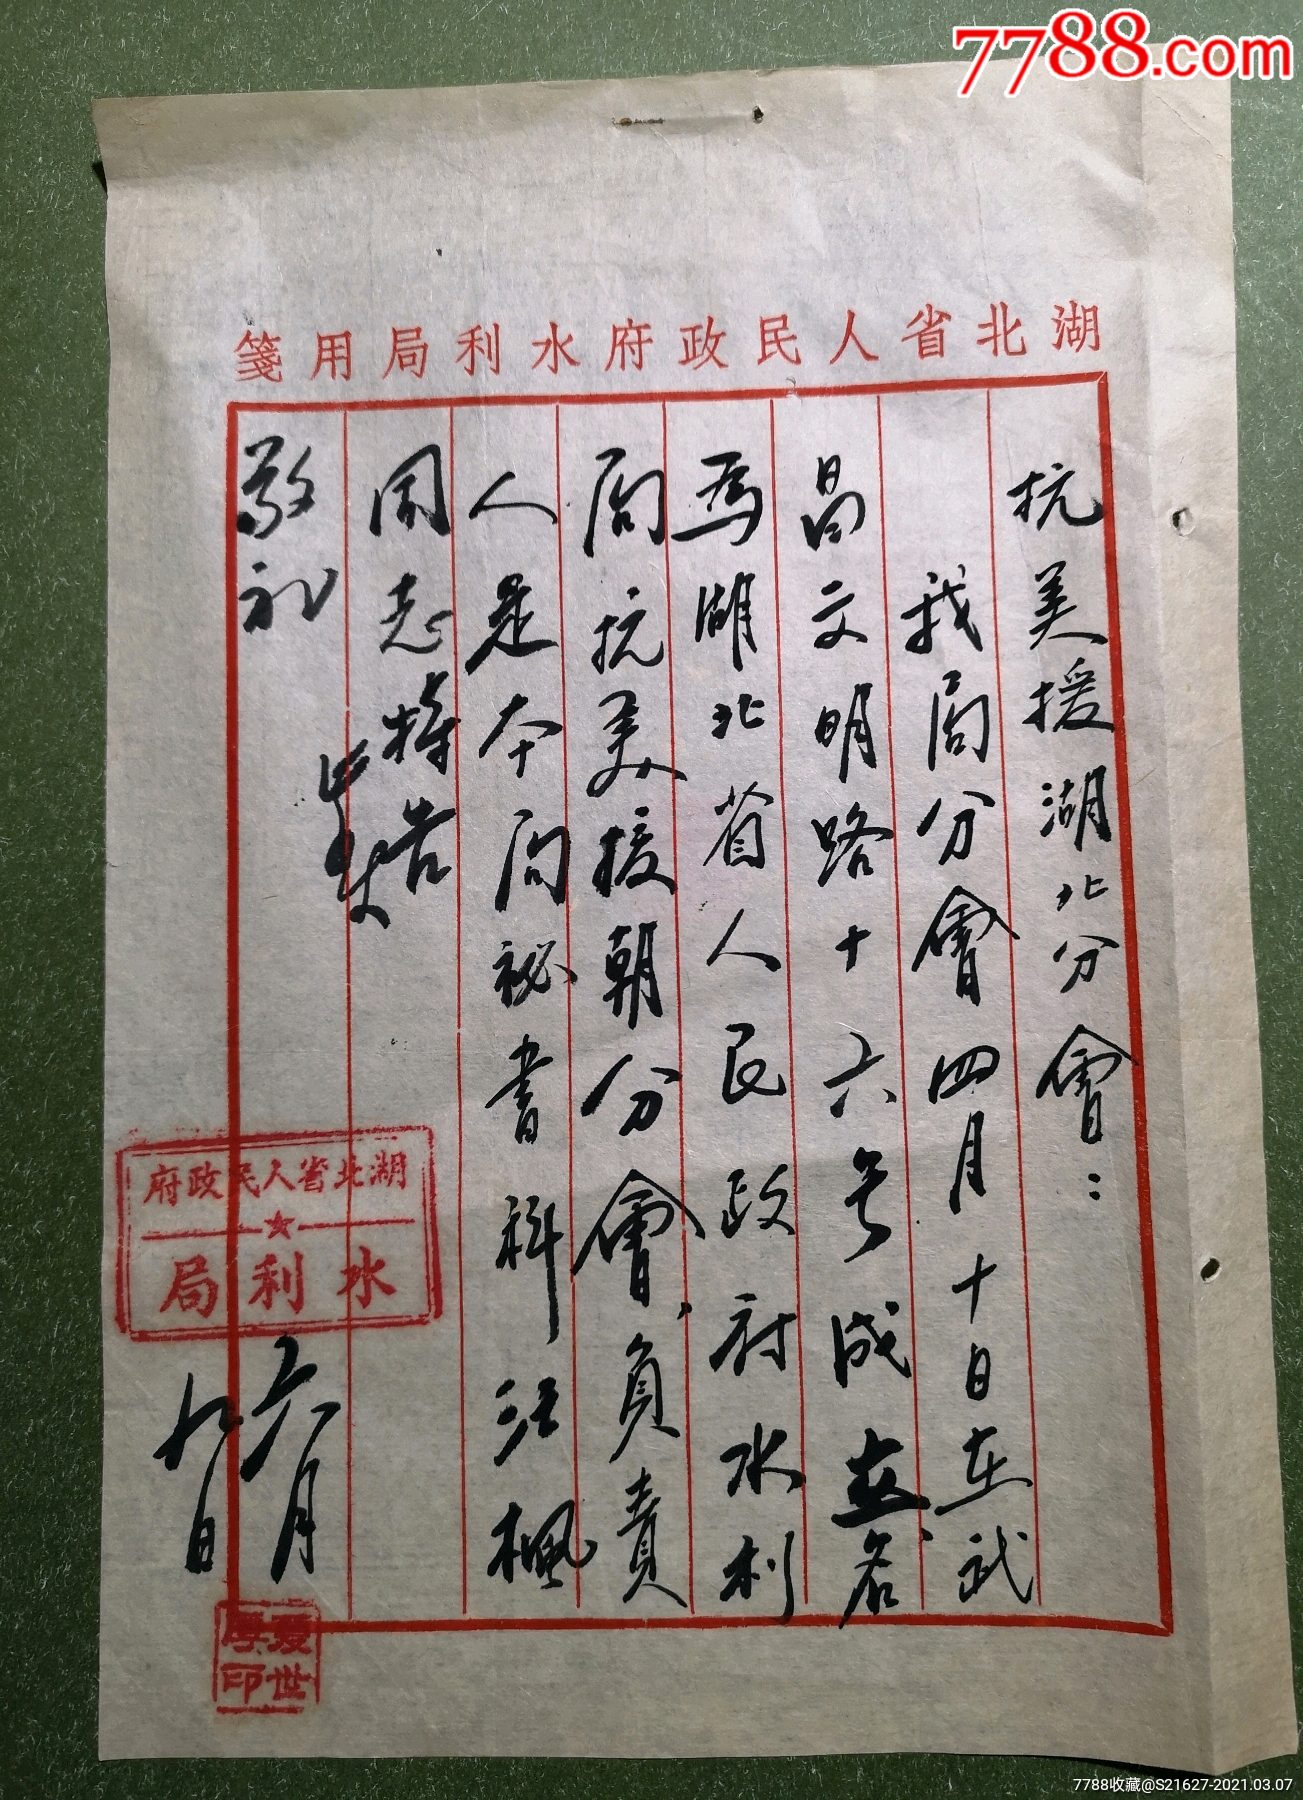 7788.com
湖北省人民政府水利局用箋
抗美援湖北分會：
我局分會四月十日在武
昌文明路十六号成立名
爲湖北省人民政府水利
局抗美援朝分會，負責
人是本局祕書科江楓
同志特告
此致
敬礼
湖北省人民政府
水利局
六月
九日
世
厚印
7788收藏@S21627-2021.03.07